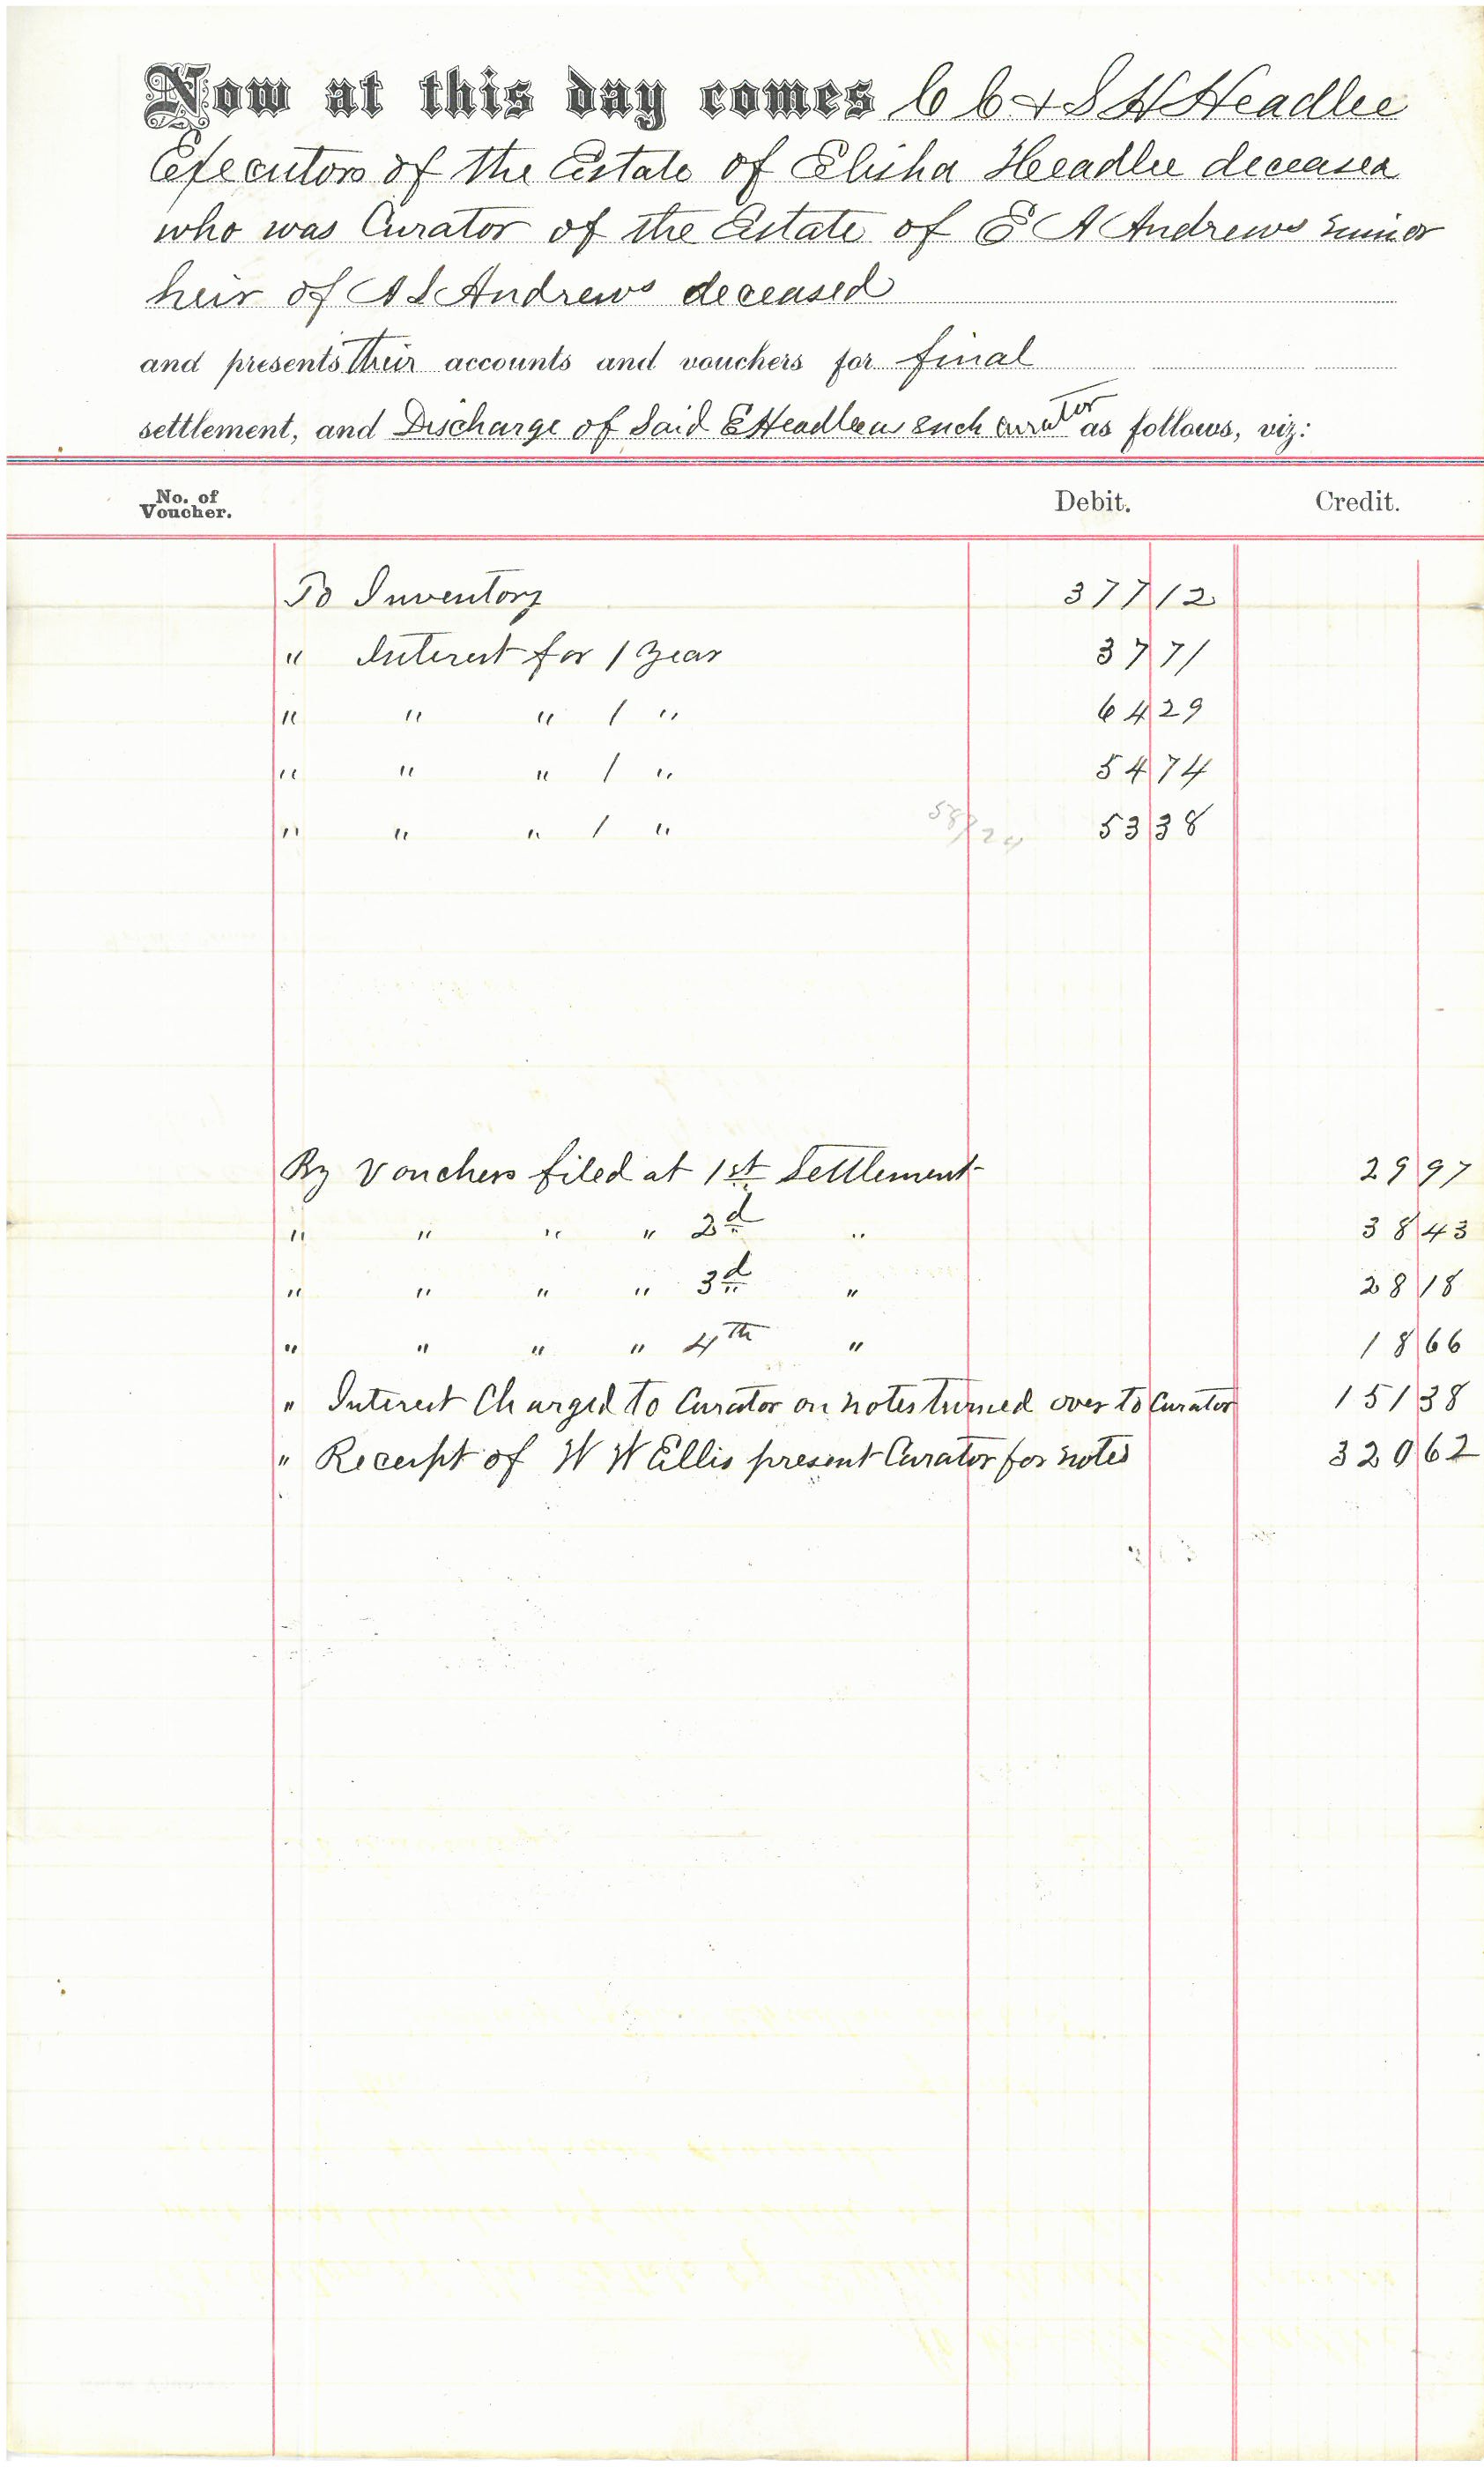 Now at this day comes C C & S H Headlee
Executors of the Estate of Elisha Headlee deceased
who was Curator of the Estate of E A Andrews minor
heir of A S Andrews deceased
and presents their accounts and vouchers for final
settlement, and Discharge of Said E Headlee as such curator as follows, viz:
No. of Voucher. Debit. Credit.
To Inventory 377 12
" Interest for 1 Year 37 71
" " " 1 " 64 29
" " " 1 " 54 74
" " " 1 " 53 38
By Vouchers filed at 1st Settlement 29 97
" " " " 2d " 38 43
" " " " 3d " 28 18
" " " " 4th " 18 66
" Interest Charged to Curator on notes turned over to Curator 151 38
" Receipt of W W Ellis present Curator for notes 320 62